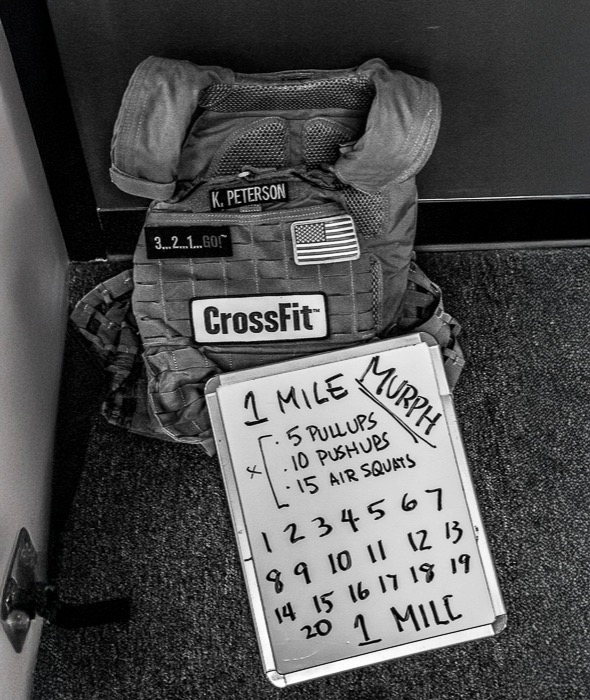 K. PETERSON
3...2...1...GO!™
CrossFit™
1 MILE MURPH
x
· 5 PULLUPS
· 10 PUSHUPS
· 15 AIR SQUATS
1 2 3 4 5 6 7
8 9 10 11 12 13
14 15 16 17 18 19
20 1 MILE